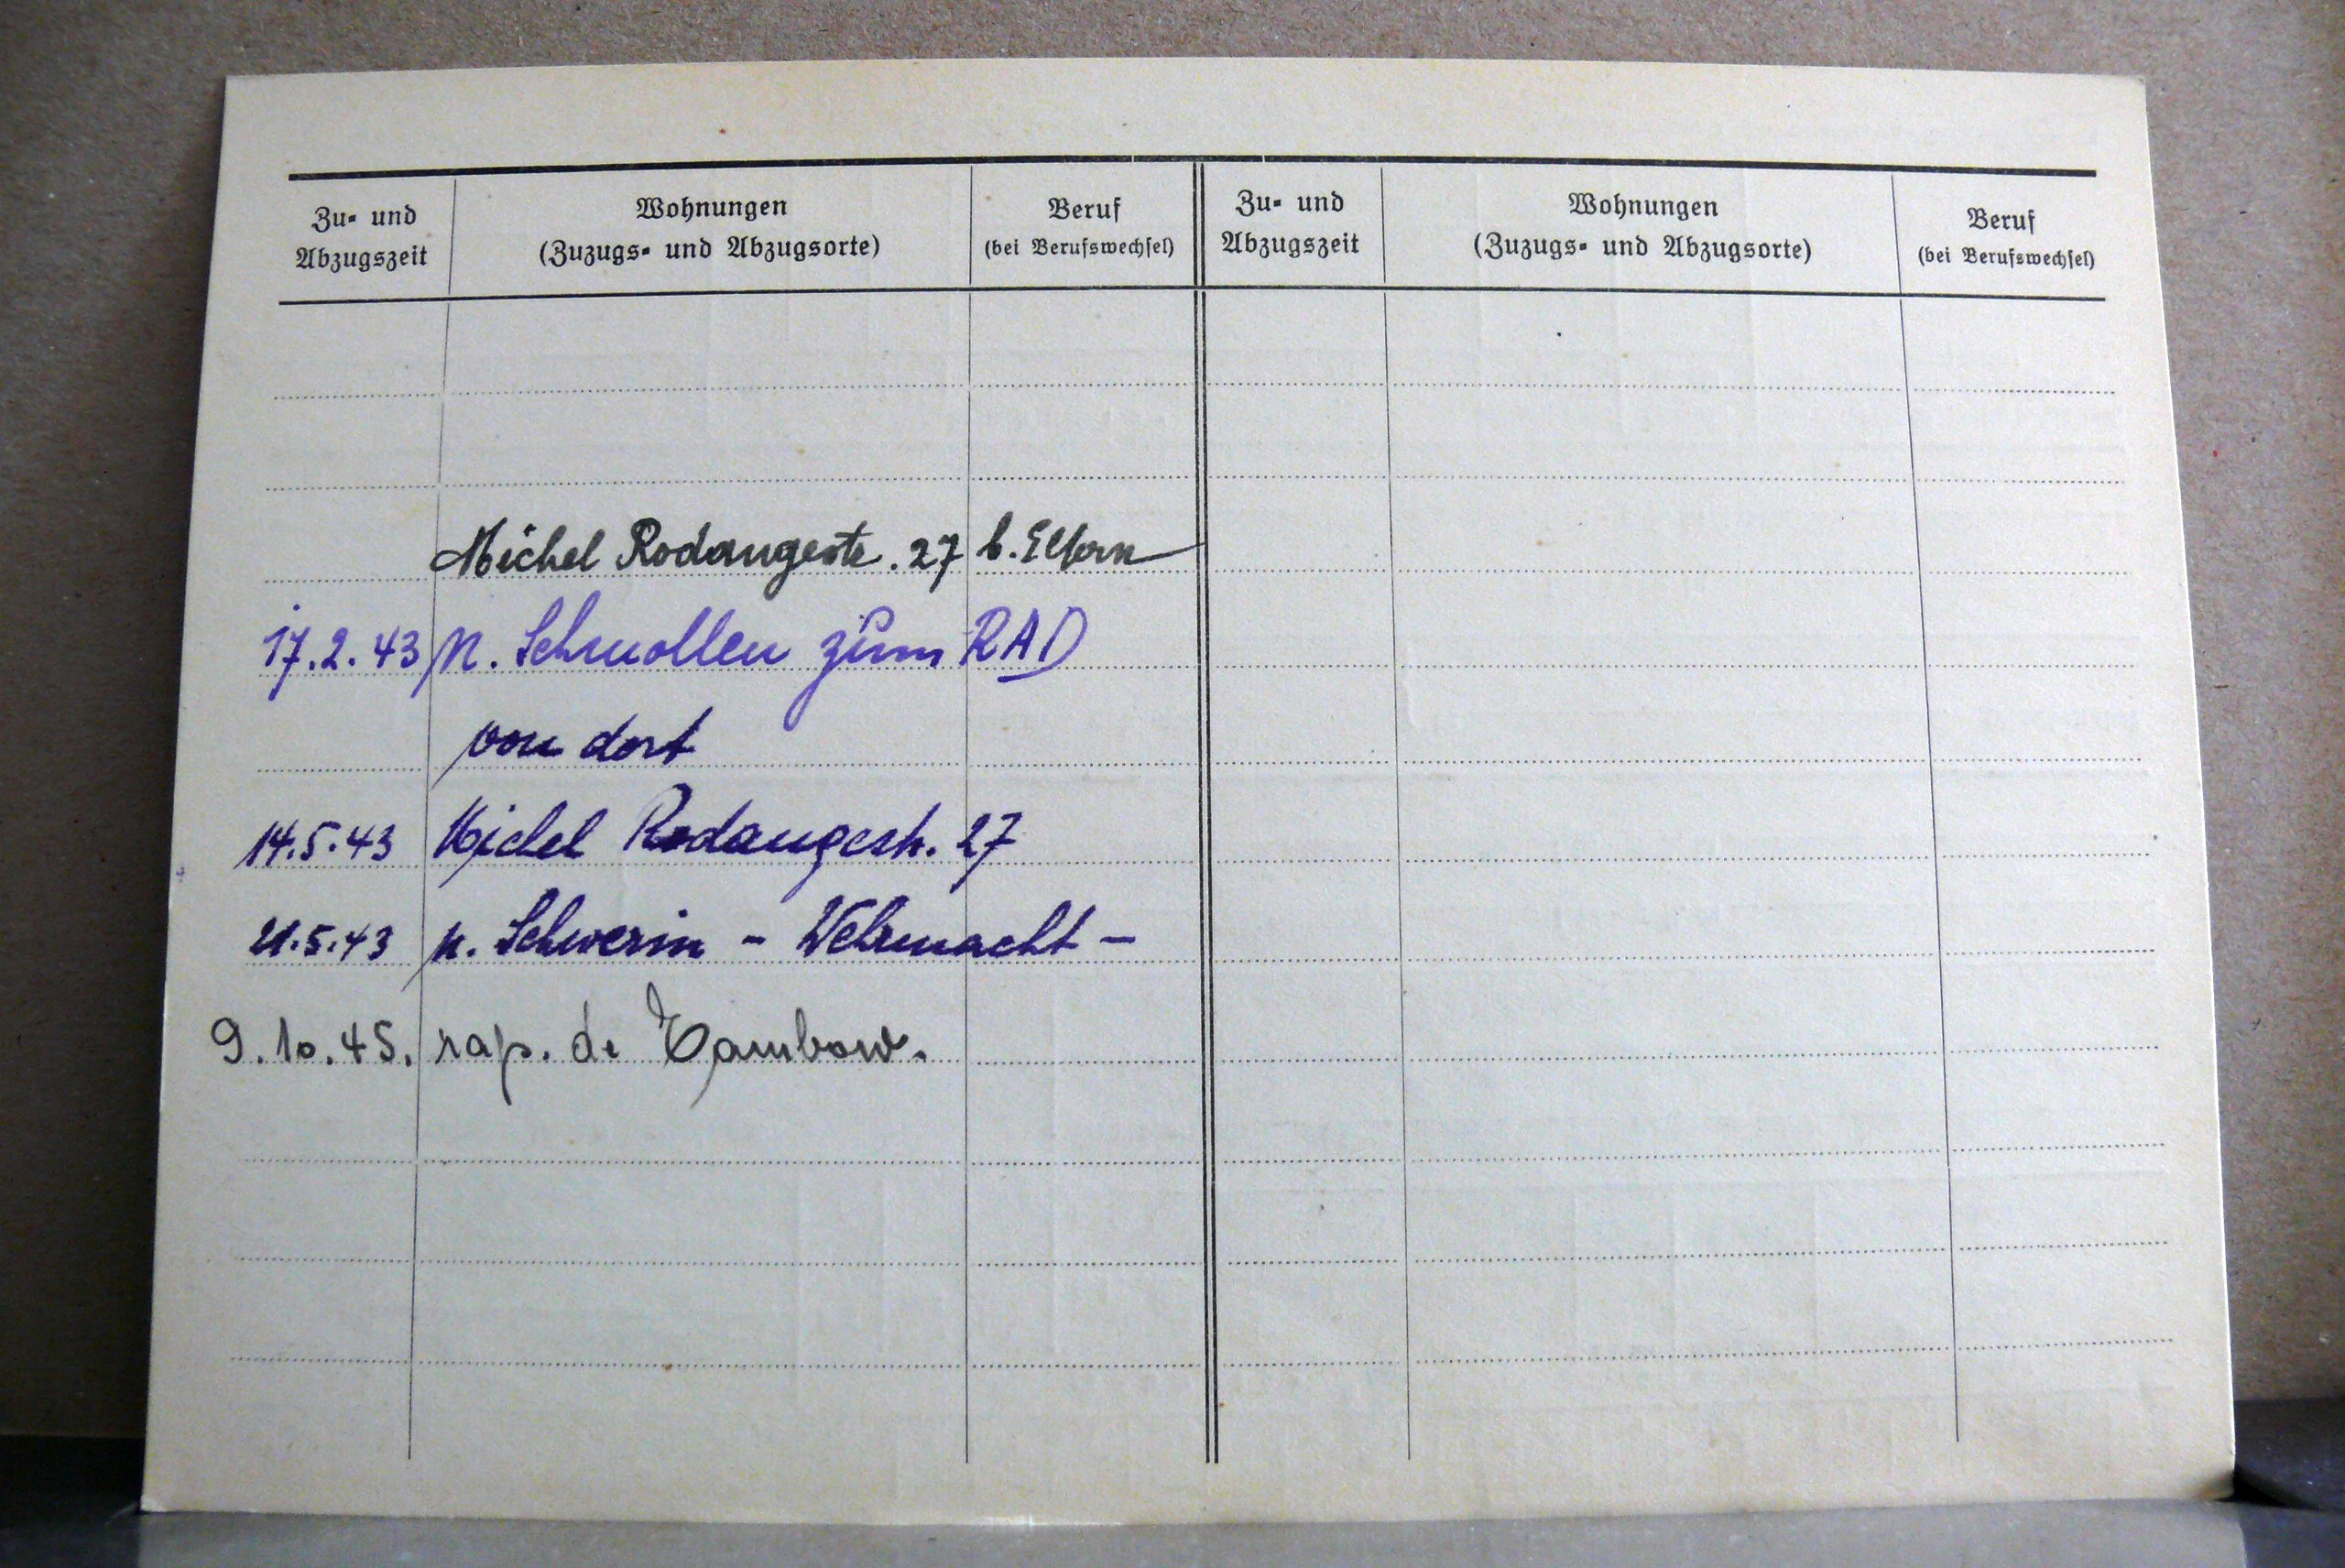 Zu- und Abzugszeit
Wohnungen
(Zuzugs- und Abzugsorte)
Beruf
(bei Berufswechsel)
Zu- und Abzugszeit
Wohnungen
(Zuzugs- und Abzugsorte)
Beruf
(bei Berufswechsel)
Michel Rodangestr. 27 b. Eltern
17.2.43 n. Schmollen zum RAD
von dort
14.5.43 Michel Rodangestr. 27
21.5.43 n. Schwerin - Wehrmacht -
9.10.45. rap. de Tambow.